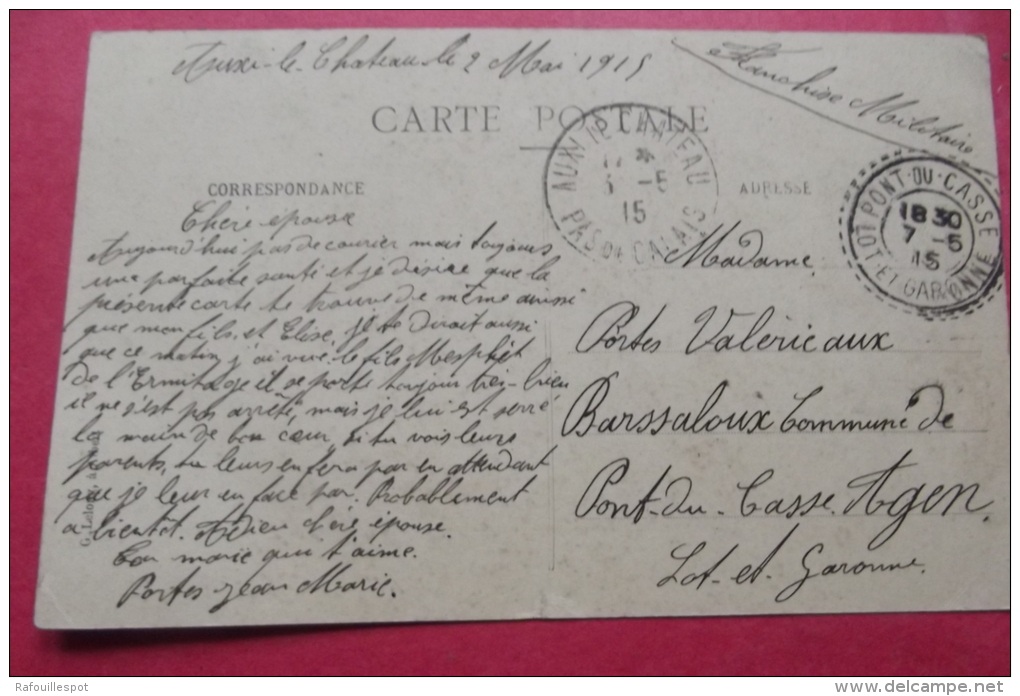 Auxi-le-Chateau le 2 Mai 1915
Franchise Militaire
CARTE POSTALE
AUXI LE CHATEAU
5 -5
15
PAS DE CALAIS
PONT-DU-CASSE
18 30
7 -5
15
LOT-ET-GARONNE
CORRESPONDANCE
ADRESSE
Chère épouse
Aujourd'hui pas de courier mais toujours
une parfaite santé et je désire que la
présente carte te trouve de même aussi
que mon fils, et Elise, je te dirait aussi
que ce matin j'ai vue le fils Mesplet
de l'Ermitage il se porte toujour trei-bien
il ne s'est pas arrêté, mais je lui est serré
la main de bon cœur, si tu vois leurs
parents, tu leurs en fera par en attendant
que je leur en face par. Probablement
a bientot. Adieu chère épouse.
Ton marie qui t'aime.
Portes Jean Marie.
Madame
Portes Valérie aux
Barssaloux Commune de
Pont-du-Casse Agen
Lot-et-Garonne
G. Lelong, à
Rafouillespot
www.delcampe.net